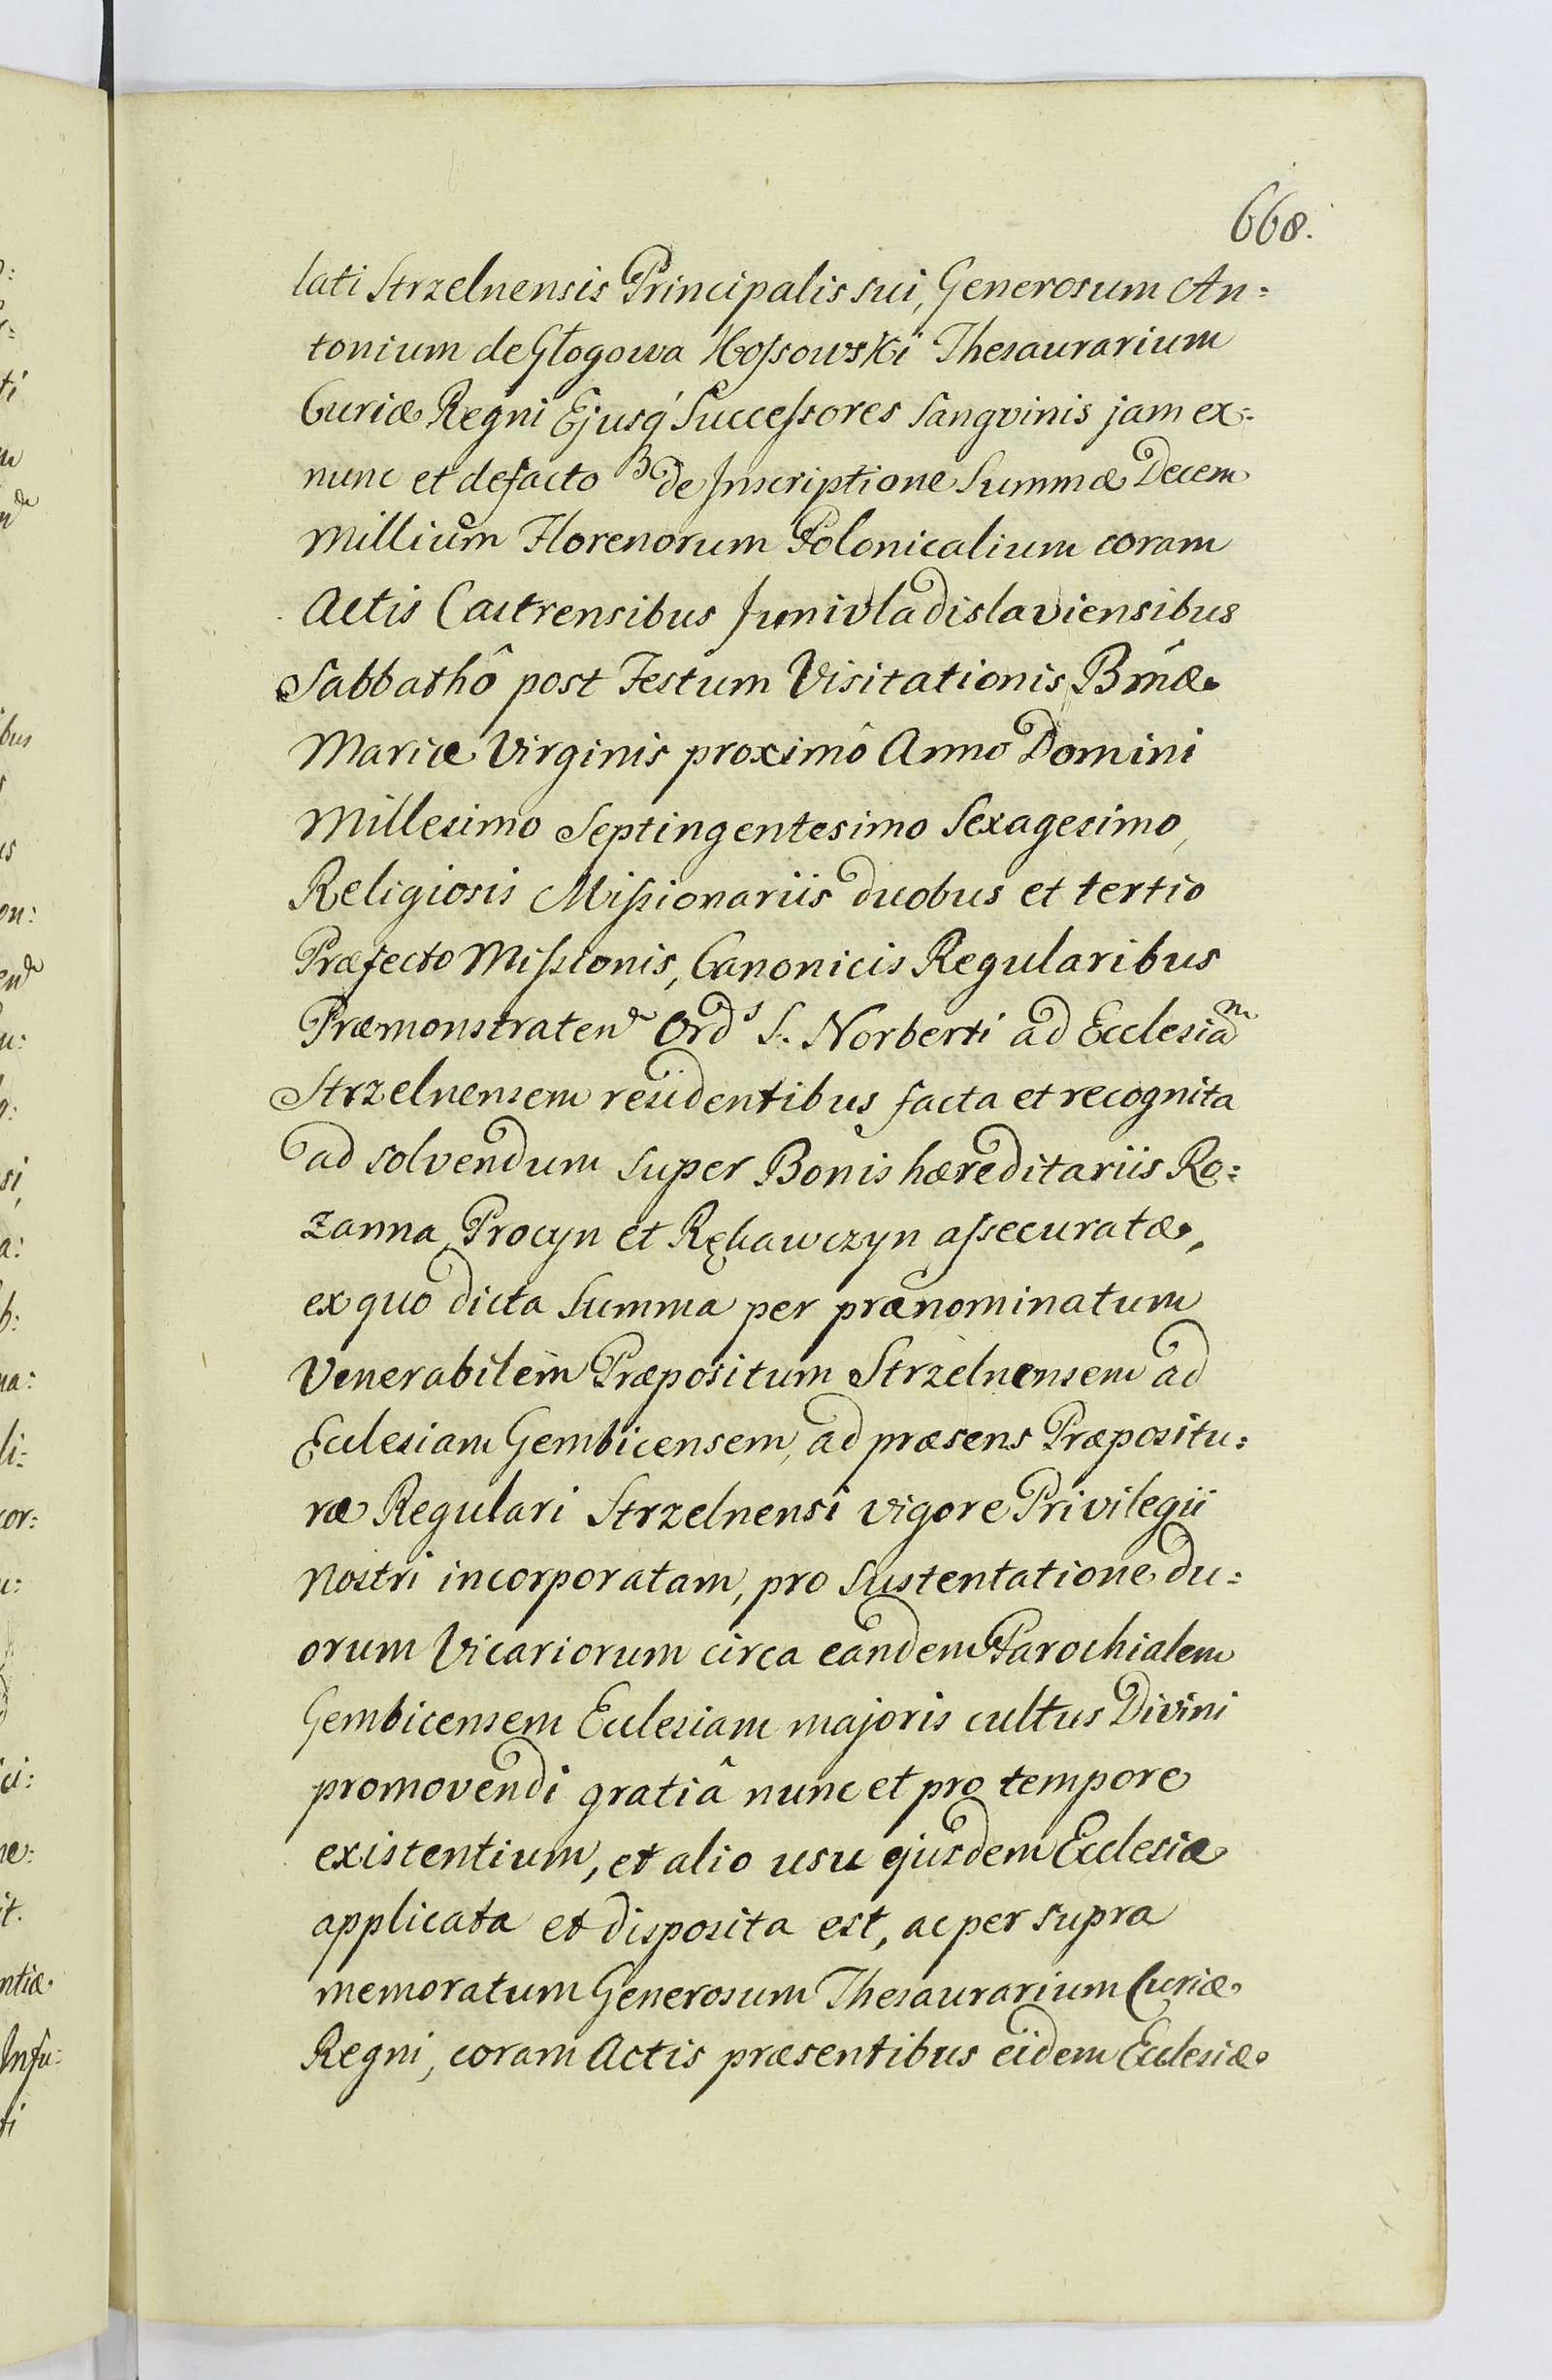 668.
lati Strzelnensis Principalis sui, Generosum An=
tonium de Głogowa Kossowski Thesaurarium
Curiæ Regni Ejusq́ Successores Sangvinis jam ex=
nunc et defacto de Inscriptione Summæ Decem
Millium Florenorum Polonicalium coram
Actis Castrensibus Junivladislaviensibus
Sabbathô post Festum Visitationis Bm̂æ
Mariæ Virginis proximô Anno Domini
Millesimo Septingentesimo Sexagesimo,
Religiosis Missionariis duobus et tertio
Præfecto Missionis, Canonicis Regularibus
Præmonstraten Ords S. Norberti ad Ecclesiam
Strzelnensem residentibus facta et recognita
ad solvendum super Bonis hæreditariis Ro=
zanna, Procyn et Rękawczyn assecuratæ,
ex quo dicta Summa per prænominatum
Venerabilem Præpositum Strzelnensem ad
Ecclesiam Gembicensem, ad præsens Præpositu=
ræ Regulari Strzelnensi vigore Privilegii
Nostri incorporatam, pro sustentatione du=
orum Vicariorum circa eandem Parochialem
Gembicensem Ecclesiam majoris cultus Divini
promovendi gratiâ nunc et pro tempore
existentium, et alio usu ejusdem Ecclesiæ
applicata et disposita est, ac per supra
memoratum Generosum Thesaurarium Curiæ
Regni, coram Actis præsentibus eidem Ecclesiæ